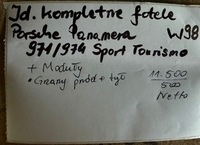 Jd. kompletne fotele
Porsche Panamera W98
971/974 Sport Tourismo
+ Moduły
• Grany przód + tył
11.500
5000
Netto